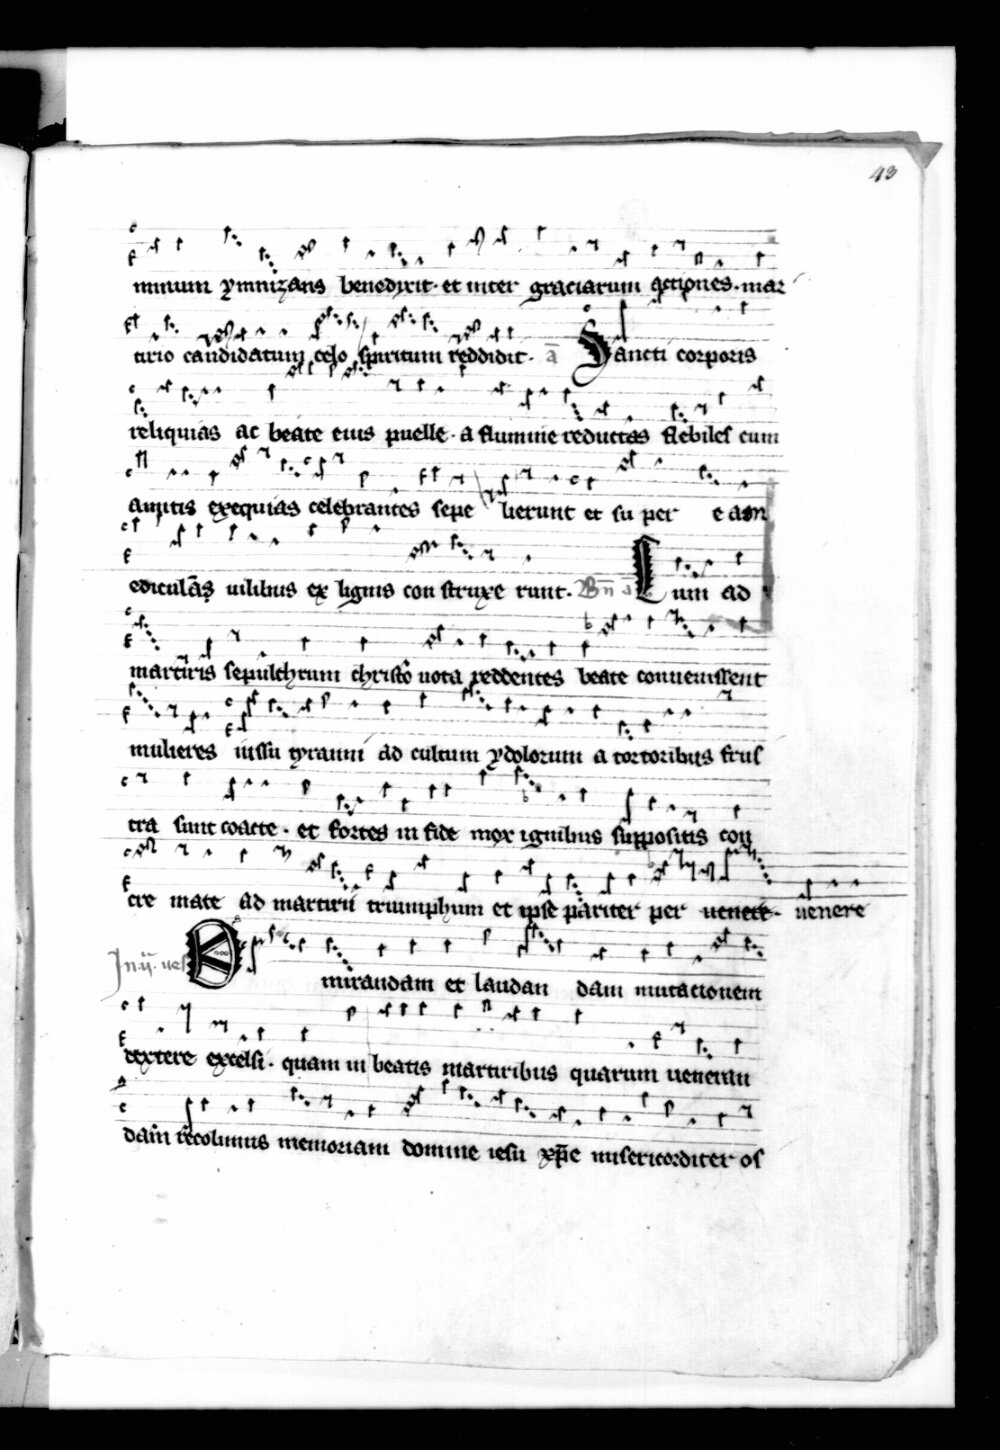 43
minum ymnizans benedixit · et inter graciarum actiones · mar
tirio candidatum celo spiritum reddidit · a̅ Sancti corporis
reliquias ac beate eius puelle · a flumine reductas flebiles cum
amitis exequias celebrantes sepe lierunt et su per e am
ediculas uilibus ex lignis con struxe runt · Bn̅ a̅ Cum ad
martiris sepulchrum christo uota reddentes beate conuenissent
mulieres iussu tyranni ad cultum ydolorum a tortoribus frus
tra sunt coacte · et fortes in fide mox ignibus suppositis con
cre mate ad martirii triumphum et ipse pariter per uenere · uenere
In ii · ues
mirandam et laudan dam mutacionem
dextere excelsi · quam in beatis martiribus quarum ueneran
dam recolimus memoriam domine iesu xp̅e misericorditer os